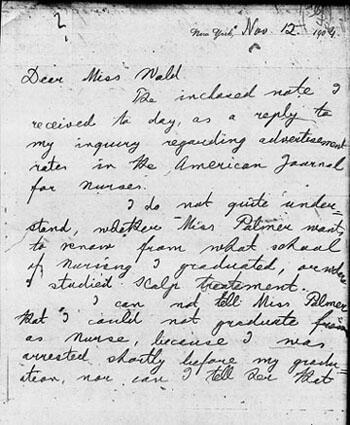 2
New York, Nov. 12. 1904
Dear Miss Wald
The inclosed note I
received to day, as a reply to
my inquiry regarding advertisement
rates in the American Journal
for Nurses.
I do not quite under-
stand, whether Miss Palmer wants
to know from what school
of Nursing I graduated, or where
I studied Scalp Treatement.
I can not tell Miss Palmer
that I could not graduate from
as Nurse, because I was
arrested shortly before my gradu-
ation, nor can I tell her that